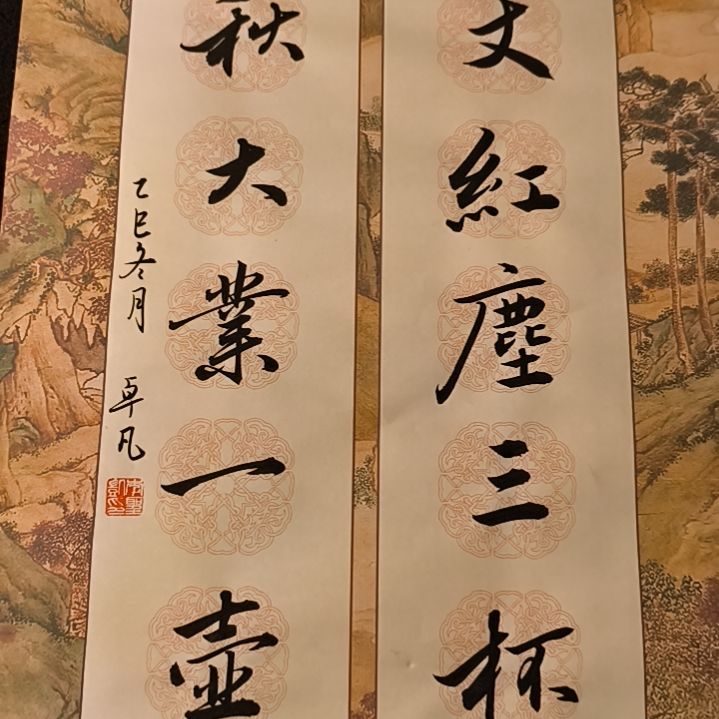 丈紅塵三杯
秋大業一壺
乙巳冬月 卓凡